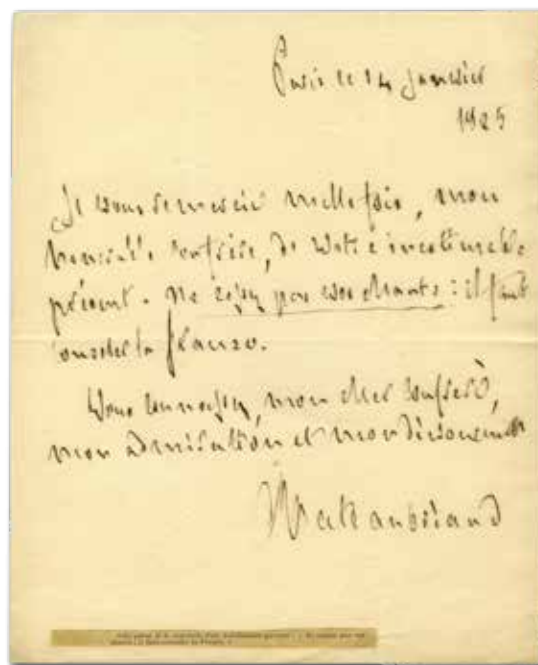 Paris le 14 janvier
1825
Je vous remercie mille fois, mon
honorable confrère, de votre inestimable
présent. Ne cessez pas vos chants : il faut
consoler la France.
Vous connaissez, mon cher confrère,
mon admiration et mon dévouement
Chateaubriand